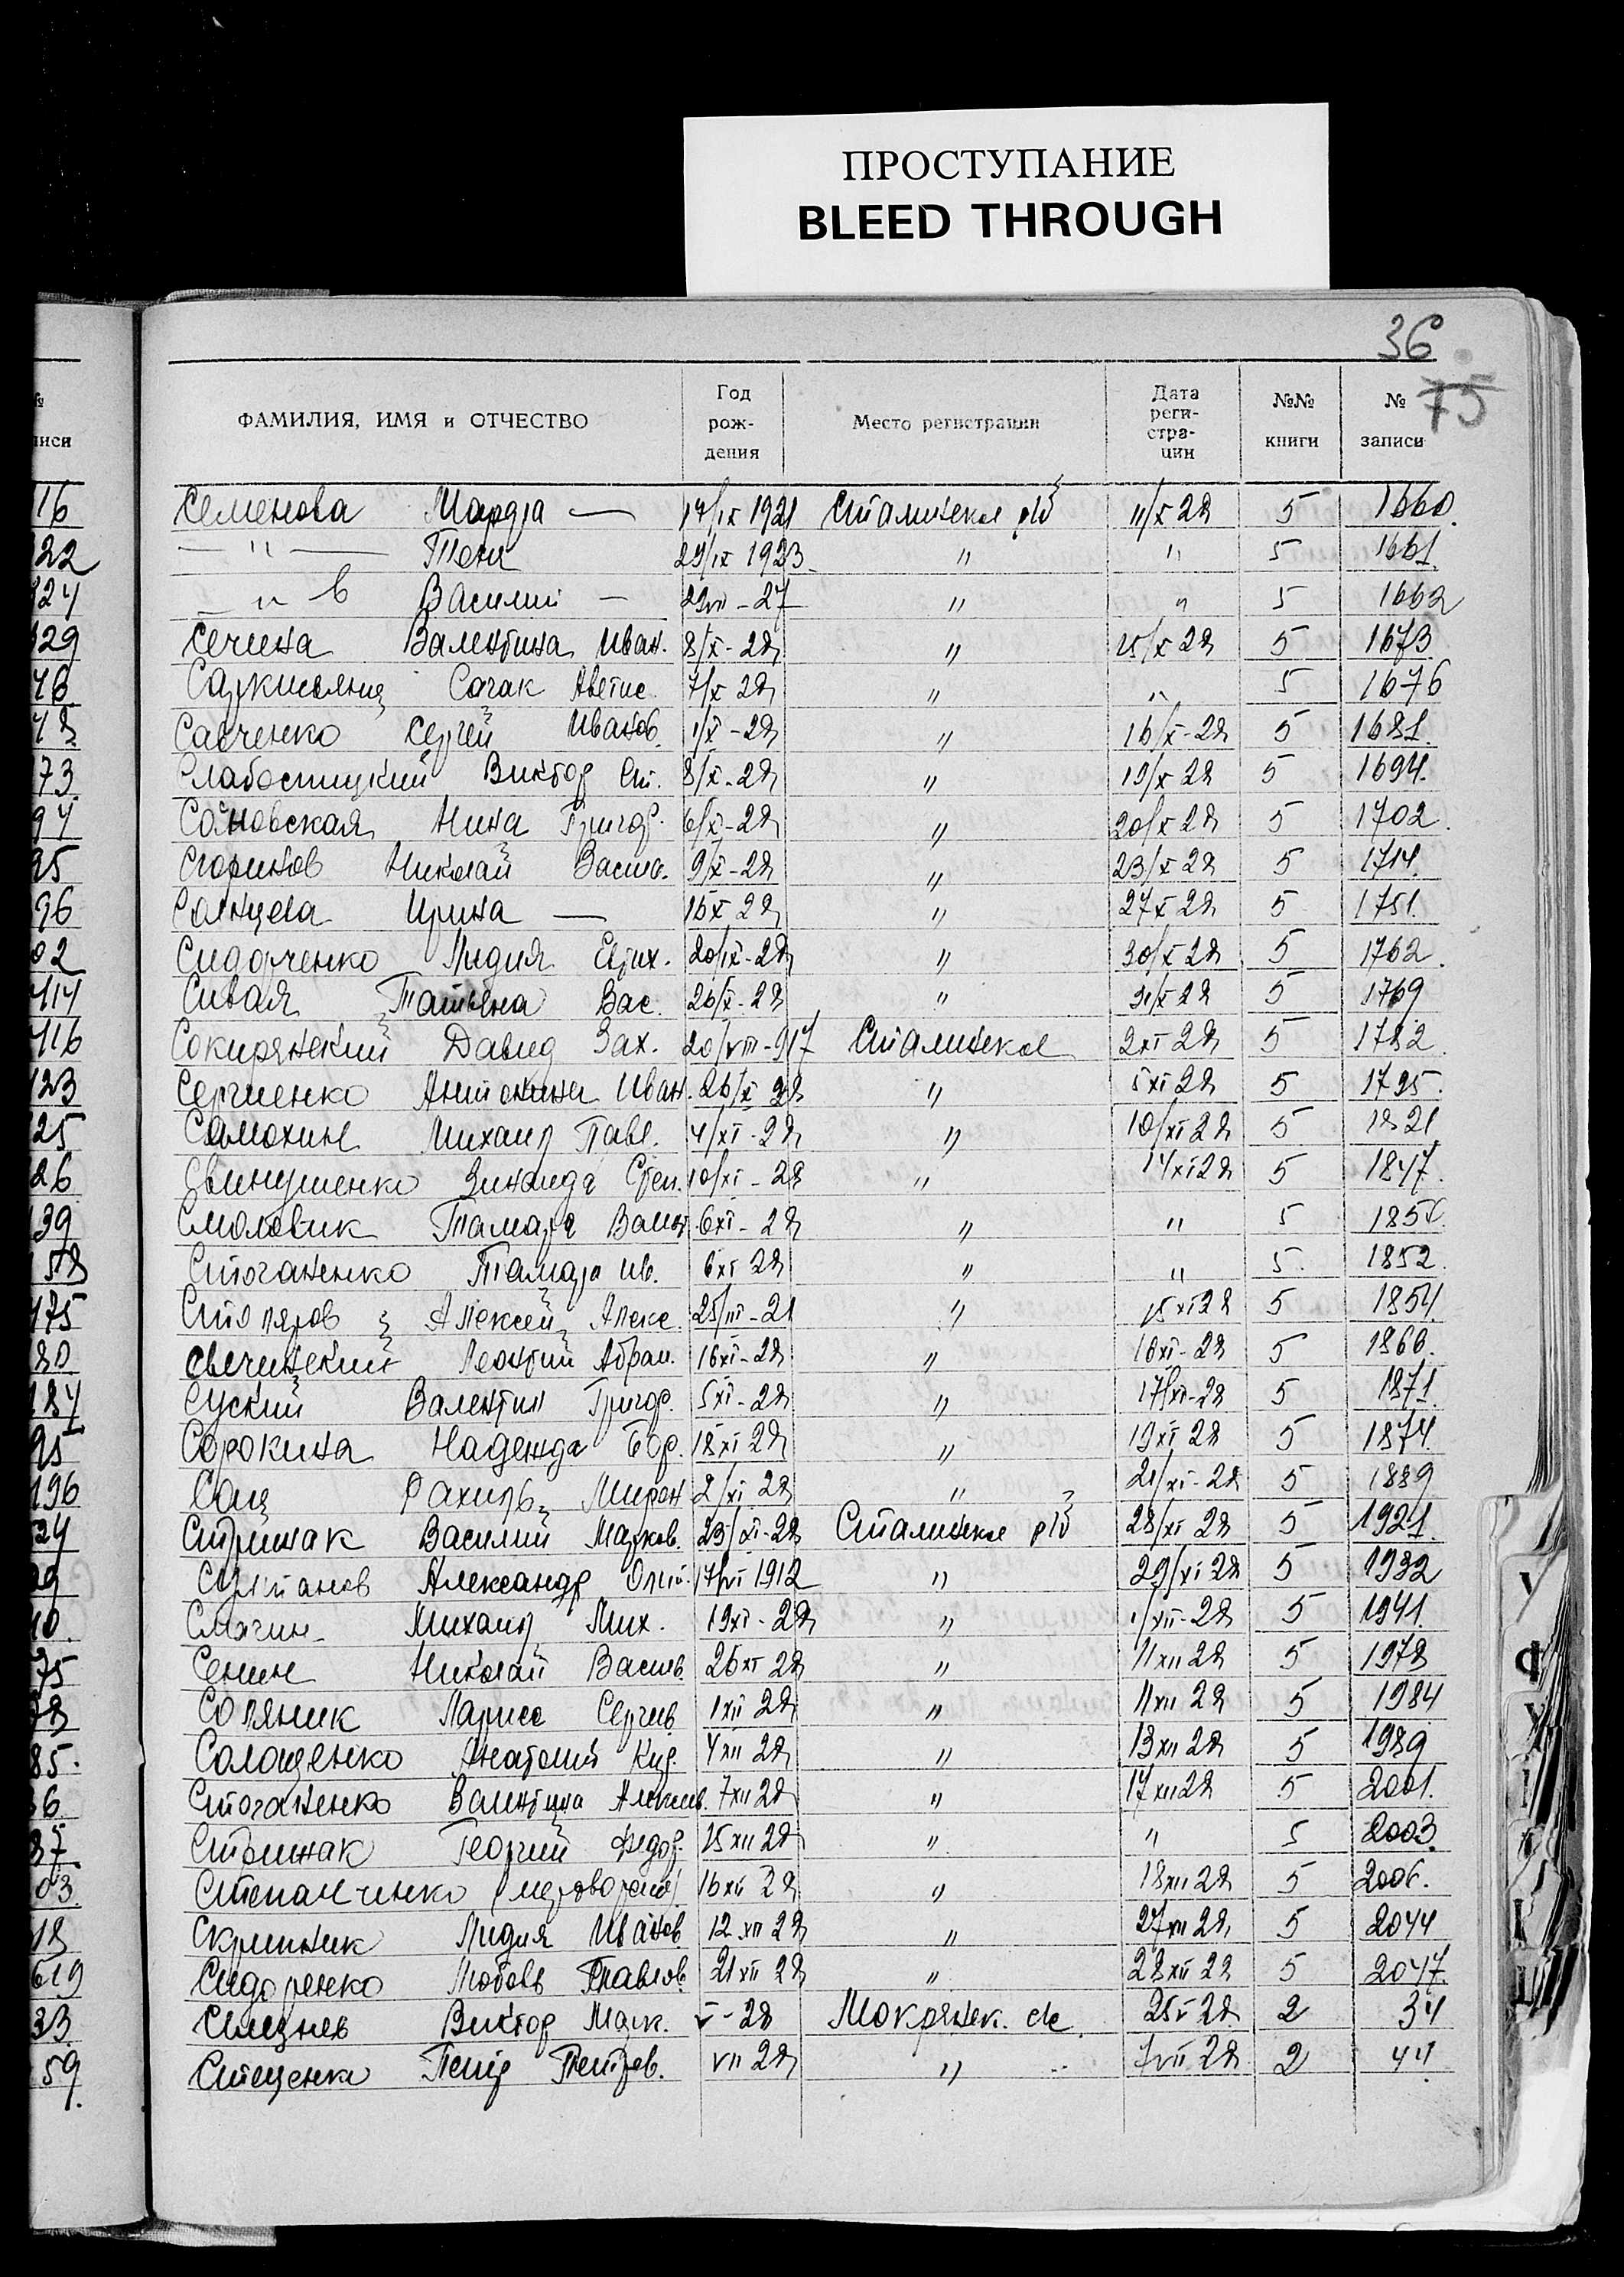 ПРОСТУПАНИЕ
BLEED THROUGH
36
75
ФАМИЛИЯ, ИМЯ и ОТЧЕСТВО Год рождения Место регистрации Дата регистрации №№ книги № записи
Семенова Мардя — 17/IX 1921 Сталинское р/б 11/X 28 5 1660.
— " — Теня 29/IX 1923 " " 5 1661.
— " в Василий — 22VII-27 " " 5 1662
Сечина Валентина Иван. 8/X-28 " 15/X 28 5 1673
Саркисянц Саак Аветис. 7/X 28 " " 5 1676
Савченко Сергей Иванов. 1/X-28 " 16/X-28 5 1681.
Слабостицкий Виктор Ст. 8/X-28 " 19/X 28 5 1694.
Сосновская Нина Григор. 6/X-28 " 20/X 28 5 1702.
Скоринов Николай Васил. 9/X-28 " 23/X 28 5 1714.
Солнцева Ирина — 16X 28 " 27X 28 5 1751.
Сидорченко Лидия Евтих. 20/IX-28 " 30/X 28 5 1762.
Сивая Татьяна Вас. 26/X-28 " 31/X 28 5 1769
Сокирянский Давид Зах. 20/VIII-917 Сталинское 2XI 28 5 1782.
Сергиенко Антонина Иван. 26/X 28 " 5XI 28 5 1795.
Самохин Михаил Павл. 4/XI-28 " 10/XI 28 5 1821
Свинушенко Зинаида Степ. 10/XI-28 " 14XI28 5 1847.
Смоловик Тамара Вален. 6XI-28 " " 5 185
Стоганенко Тамара Ив. 6XI 28 " " 5. 1852.
Столяров Алексей Алекс. 25/III-21 " 15XI28 5 1854.
Свечинский Леонтий Абрам. 16XI-28 " 16XI-28 5 1860.
Суский Валентин Григор. 5XI-28 " 17/XI-28 5 1871.
Сорокина Надежда Бор. 18XI 28 " 19XI 28 5 1874.
Сац Рахиль Мирон 2/XI 28 " 21/XI-28 5 1889
Стрижак Василий Марков. 23/XI-28 Сталинское р/б 28/XI 28 5 1921.
Султанов Александр 17/VI 1912 " 29/XI 28 5 1932
Смагин Михаил Мих. 19XI-28 " 1/XII-28 5 1941.
Сенин Николай Васил. 26XI 28 " 11XII 28 5 1978
Соляник Лариса Сергив 1XII 28 " 11XII 28 5 1984
Солощенко Анатолий Кир. 4XII 28 " 13XII 28 5 1989
Стоганенко Валентина Алексив. 7XII 28 " 17XII28 5 2001.
Стрижак Георгий Федор. 15XII 28 " " 5 2003.
Степанченко (мертворожд) 16XII 28 " 18XII 28 5 200
Скрипник Лидия Иванов. 12XII 28 " 27XII 28, 5 2044
Сидоренко Любовь Павлов. 21XII 28 " 28XII 28 5 2047.
Селезнев Виктор Марк. V-28 Мокрянск. с/с 25V 28 2 34
Стеценко Петр Петров. VII 28 " 7VII 28 2 44